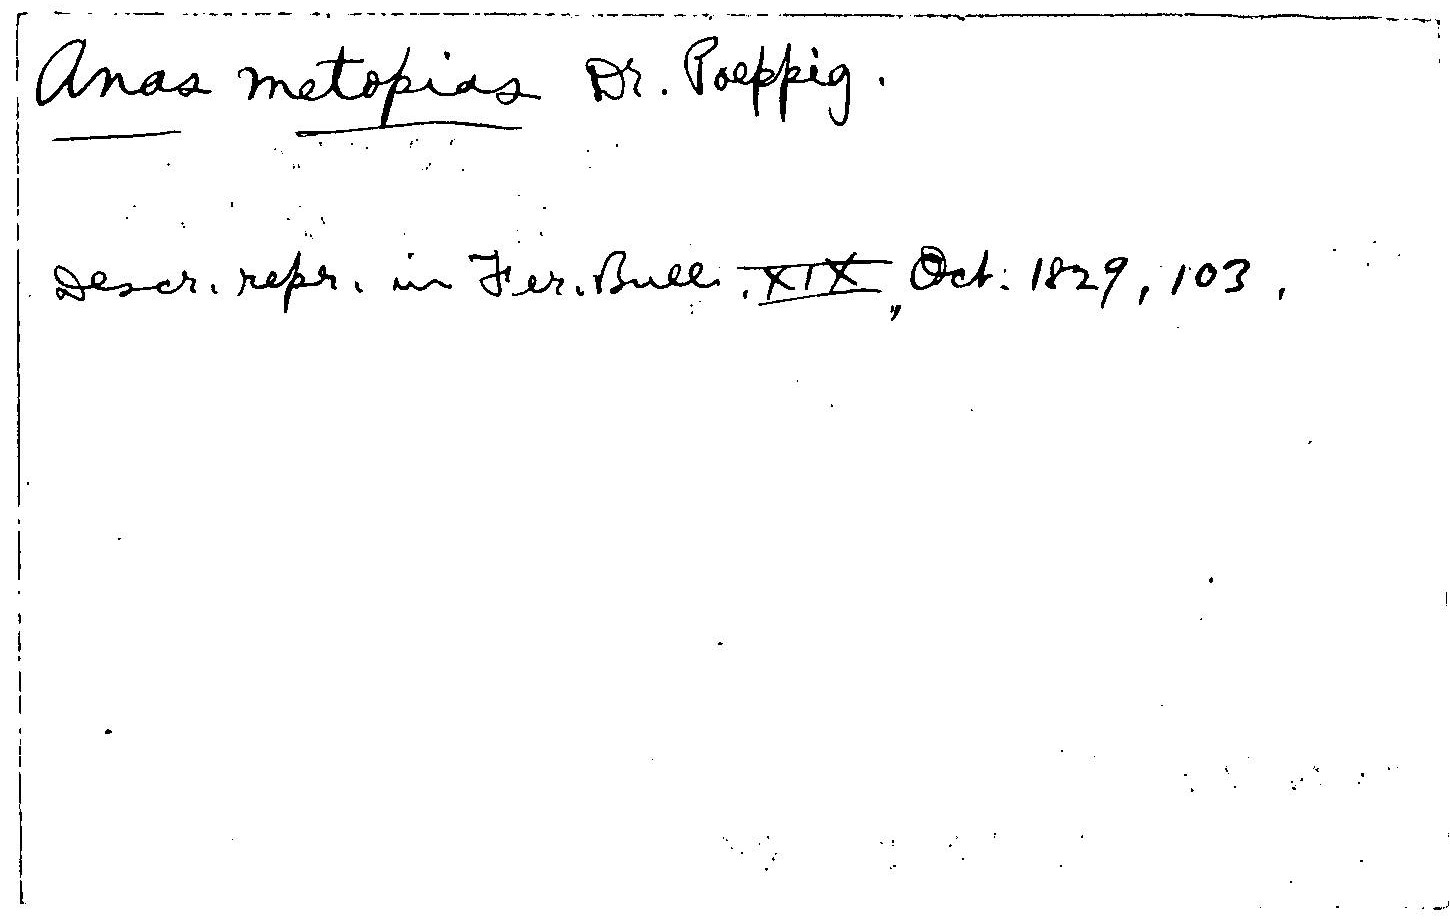 Anas metopias Dr. Poeppig.
Descr. repr. in Fer. Bull. XIX, Oct: 1829, 103.